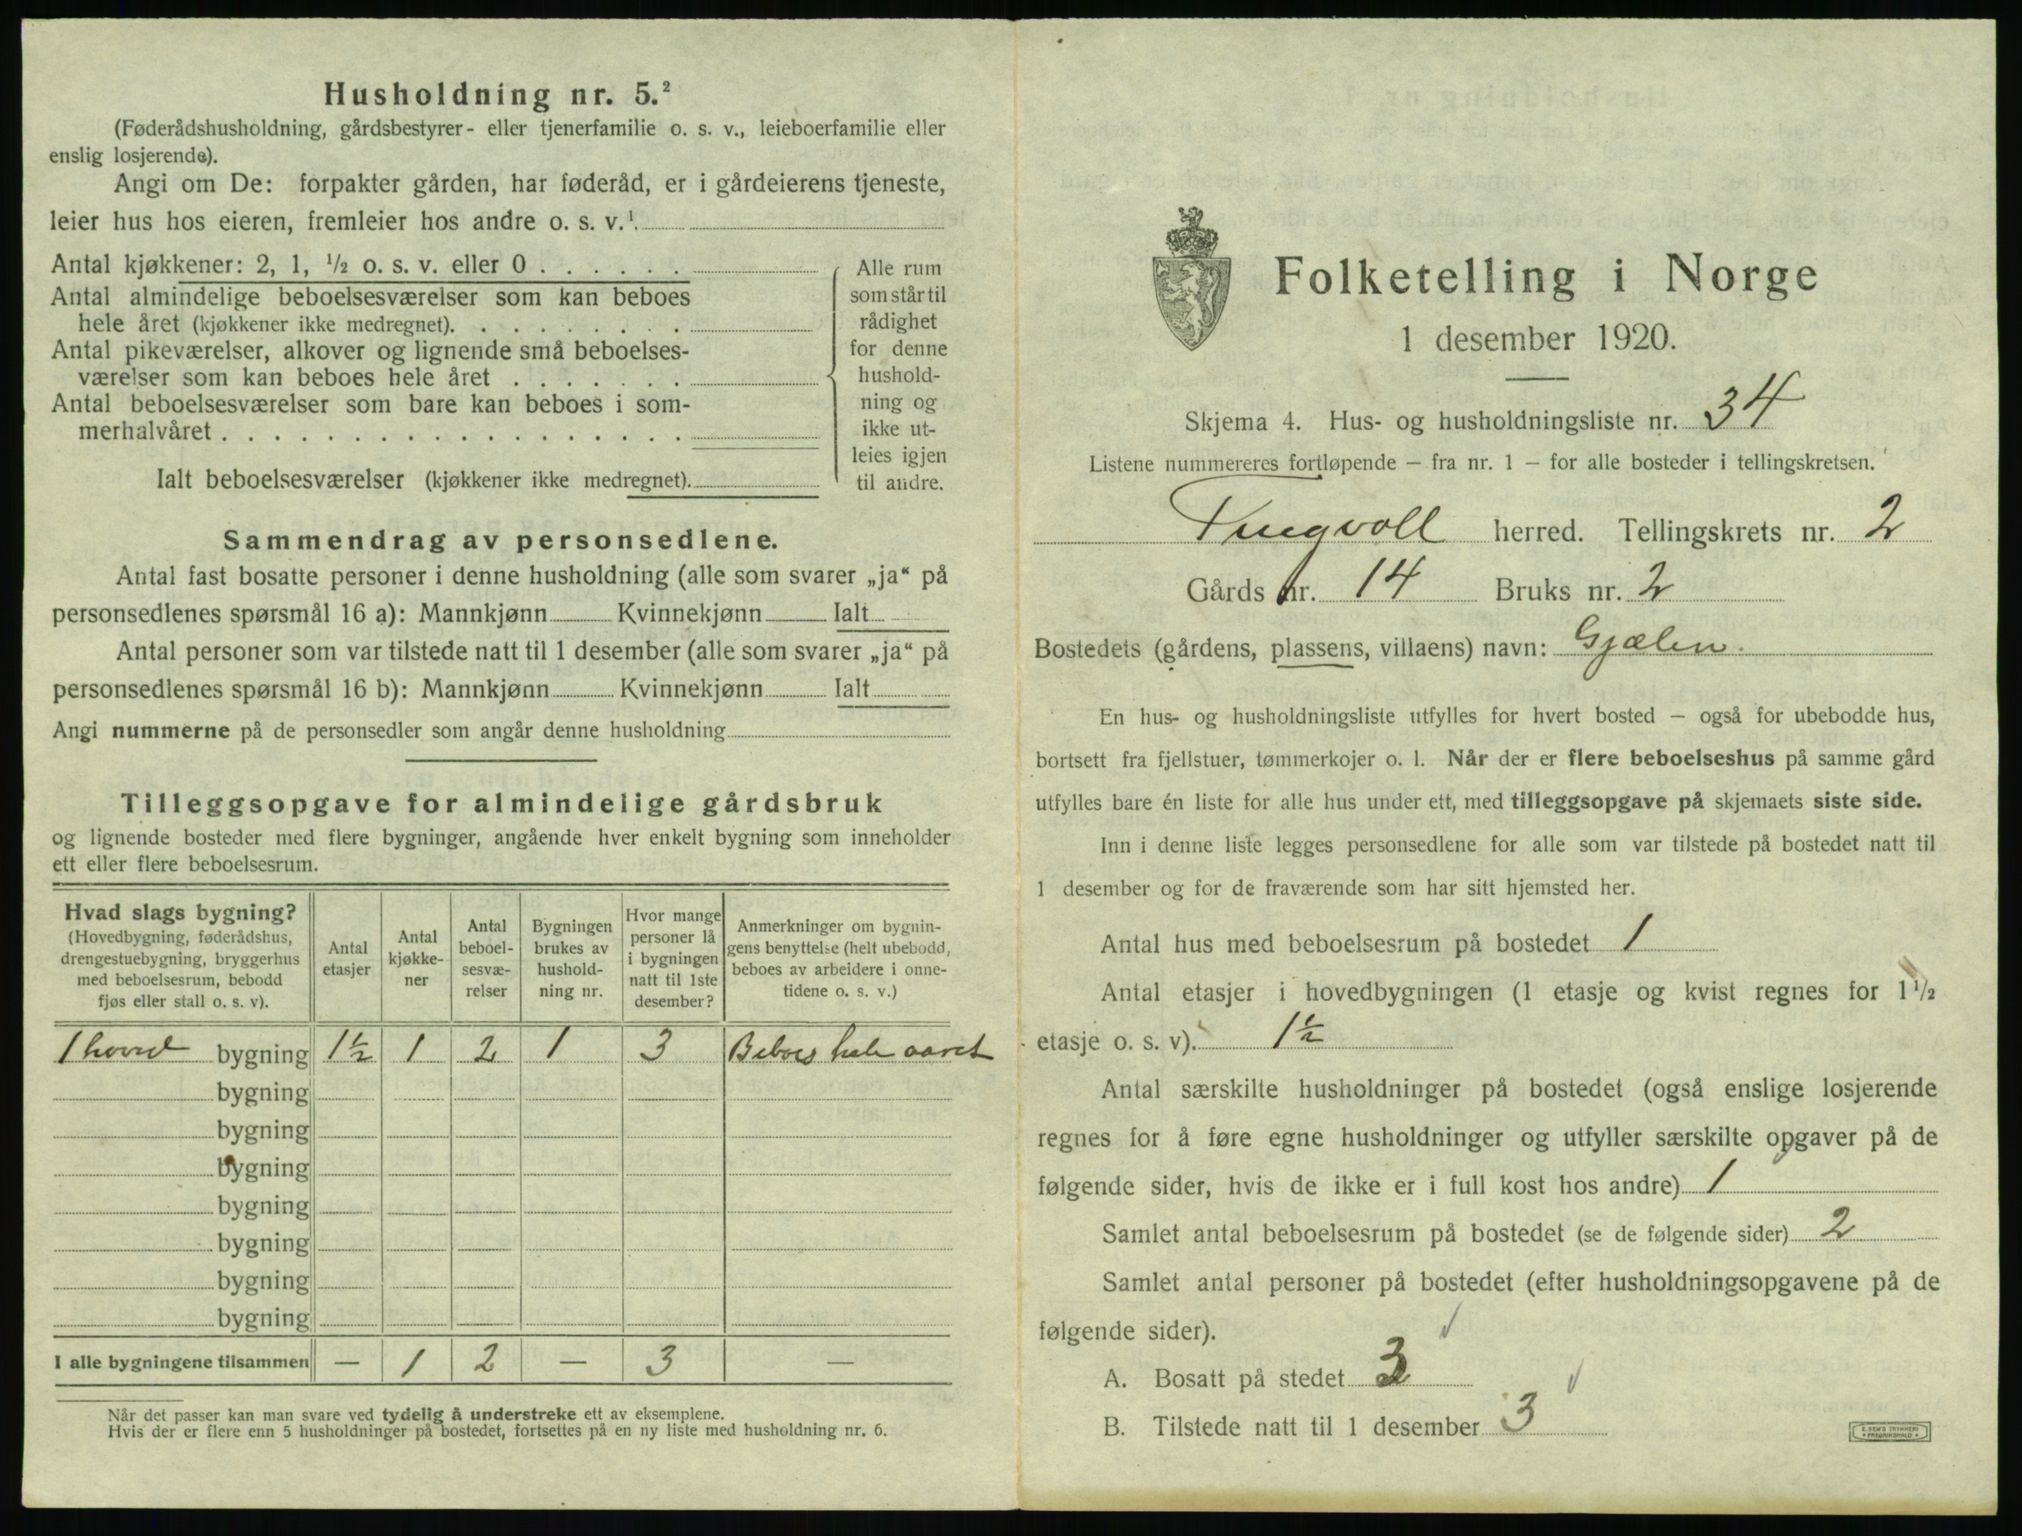 Husholdning nr. 5.²
(Føderådshusholdning, gårdsbestyrer- eller tjenerfamilie o. s. v., leieboerfamilie eller
enslig losjerende).
Angi om De: forpakter gården, har føderåd, er i gårdeierens tjeneste,
leier hus hos eieren, fremleier hos andre o. s. v.¹
Antal kjøkkener: 2, 1, ½ o. s. v. eller 0 . . . . . .
Antal almindelige beboelsesværelser som kan beboes
hele året (kjøkkener ikke medregnet). . . . . . . . .
Antal pikeværelser, alkover og lignende små beboelses-
værelser som kan beboes hele året . . . . . . .
Antal beboelsesværelser som bare kan beboes i som-
merhalvåret . . . . . . . . . . . . . . . . . .
Ialt beboelsesværelser (kjøkkener ikke medregnet).
Alle rum
som står til
rådighet
for denne
hushold-
ning og
ikke ut-
leies igjen
til andre.
Sammendrag av personsedlene.
Antal fast bosatte personer i denne husholdning (alle som svarer „ja“ på
personsedlenes spørsmål 16 a): Mannkjønn Kvinnekjønn Ialt
Antal personer som var tilstede natt til 1 desember (alle som svarer „ja“ på
personsedlenes spørsmål 16 b): Mannkjønn Kvinnekjønn Ialt
Angi nummerne på de personsedler som angår denne husholdning
Tilleggsopgave for almindelige gårdsbruk
og lignende bosteder med flere bygninger, angående hver enkelt bygning som inneholder
ett eller flere beboelsesrum.
Hvad slags bygning?
(Hovedbygning, føderådshus,
drengestuebygning, bryggerhus
med beboelsesrum, bebodd
fjøs eller stall o. s. v).
Antal
etasjer
Antal
kjøkke-
ner
Antal
beboel-
sesvæ-
relser
Bygningen
brukes av
hushold-
ning nr.
Hvor mange
personer lå
i bygningen
natt til 1ste
desember?
Anmerkninger om bygnin-
gens benyttelse (helt ubebodd,
beboes av arbeidere i onne-
tidene o. s. v.)
1 hoved bygning 1½ 1 2 1 3 Beboes hele aaret
bygning
bygning
bygning
bygning
bygning
bygning
bygning
I alle bygningene tilsammen — 1 2 — 3 —
Når det passer kan man svare ved tydelig å understreke ett av eksemplene.
Hvis der er flere enn 5 husholdninger på bostedet, fortsettes på en ny liste med husholdning nr. 6.
Folketelling i Norge
1 desember 1920.
Skjema 4. Hus- og husholdningsliste nr. 34
Listene nummereres fortløpende – fra nr. 1 – for alle bosteder i tellingskretsen.
Tingvoll herred. Tellingskrets nr. 2
Gårds nr. 14 Bruks nr. 2
Bostedets (gårdens, plassens, villaens) navn: Gjælen.
En hus- og husholdningsliste utfylles for hvert bosted – også for ubebodde hus,
bortsett fra fjellstuer, tømmerkojer o. l. Når der er flere beboelseshus på samme gård
utfylles bare én liste for alle hus under ett, med tilleggsopgave på skjemaets siste side.
Inn i denne liste legges personsedlene for alle som var tilstede på bostedet natt til
1 desember og for de fraværende som har sitt hjemsted her.
Antal hus med beboelsesrum på bostedet 1
Antal etasjer i hovedbygningen (1 etasje og kvist regnes for 1½
etasje o. s. v). 1½
Antal særskilte husholdninger på bostedet (også enslige losjerende
regnes for å føre egne husholdninger og utfyller særskilte opgaver på de
følgende sider, hvis de ikke er i full kost hos andre) 1
Samlet antal beboelsesrum på bostedet (se de følgende sider) 2
Samlet antal personer på bostedet (efter husholdningsopgavene på de
følgende sider).
A. Bosatt på stedet 3
B. Tilstede natt til 1 desember 3